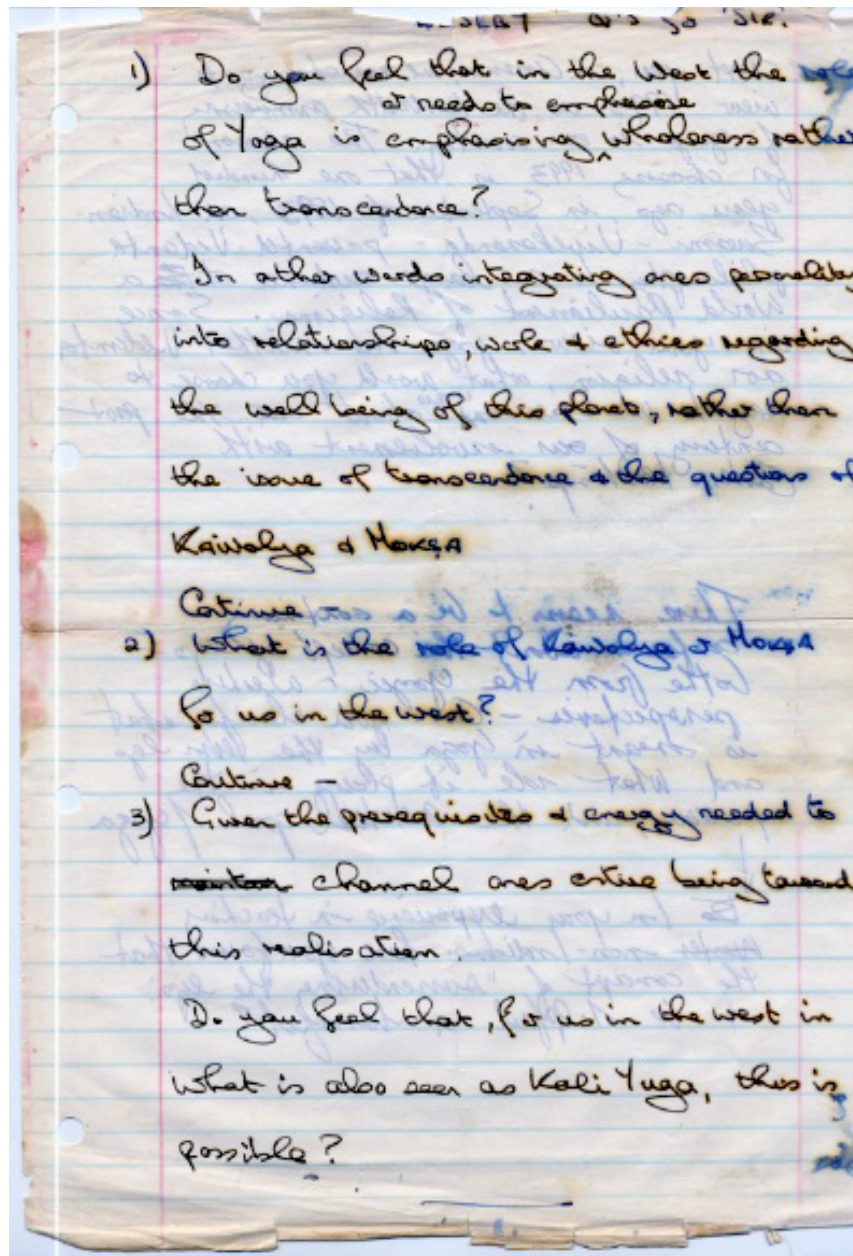 Q's to 'Sir'.
1) Do you feel that in the West the role
or needs to emphasise
of Yoga is emphasising ^ wholeness rather
than transcendence?
In other words integrating ones personality
into relationships, work & ethics regarding
the well being of this planet, rather than
the issue of transcendence & the question of
Kaivalya & MOKṢA
Continue –
2) What is the role of Kaivalya & MOKṢA
for us in the west?
Continue –
3) Given the prerequisites & energy needed to
channel ones entire being toward
this realisation.
Do you feel that, for us in the west in
what is also seen as Kali Yuga, this is
possible?